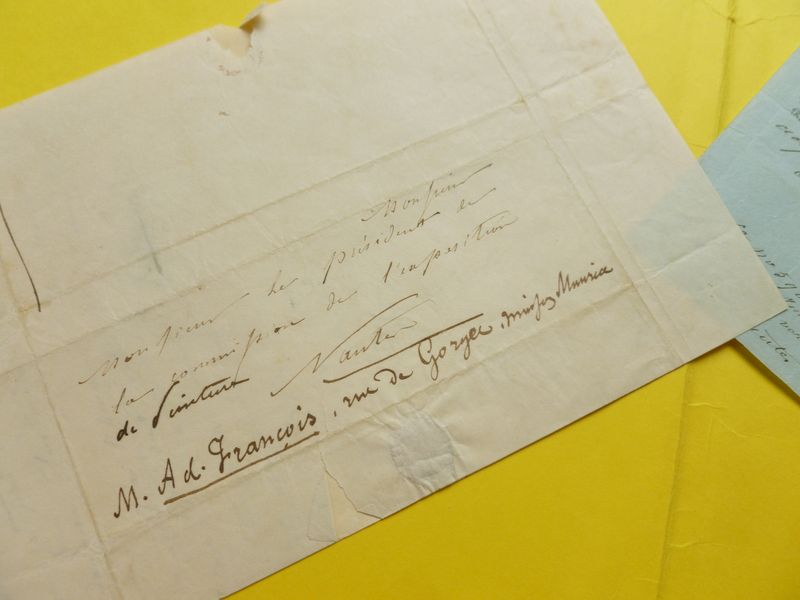 Monsieur
Monsieur le président de
la commission de l'exposition
de Peinture Nantes
M. Ad. François, rue de Gorges, maison